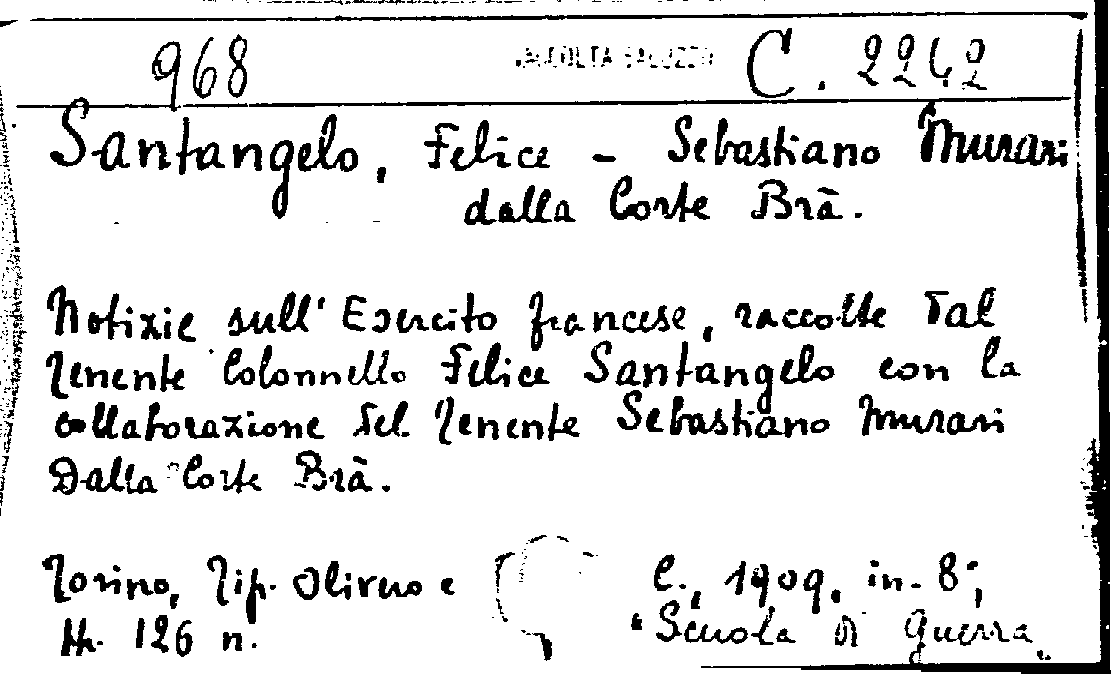 968 RACCOLTA SALUZZO C. 2242
Santangelo, Felice - Sebastiano Murari
dalla Corte Brà.
Notizie sull' Esercito francese, raccolte dal
Tenente Colonnello Felice Santangelo con la
collaborazione del Tenente Sebastiano Murari
Dalla Corte Brà.
Torino, Tip. Olivero e C., 1909, in-8°,
pp. 126 n. "Scuola di guerra"